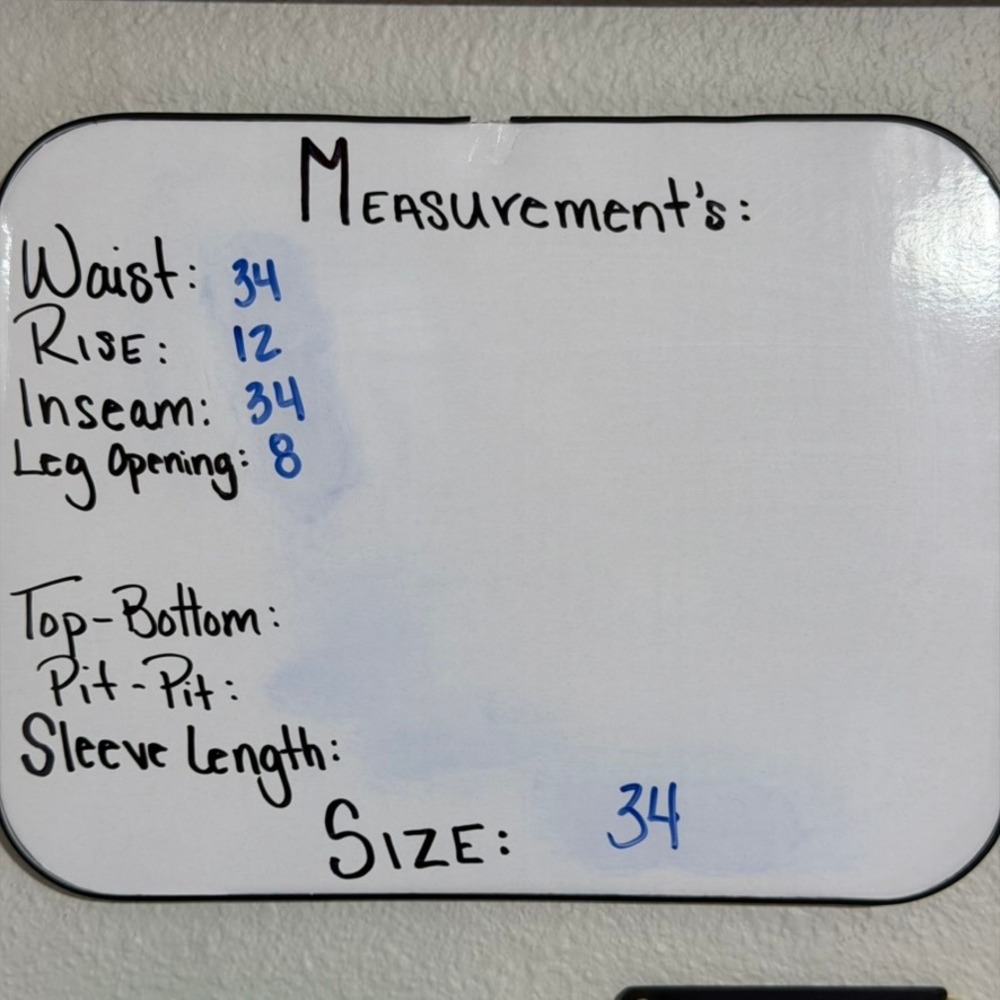 MEASurement's:
Waist: 34
RISE: 12
Inseam: 34
Leg Opening: 8
Top-Bottom:
Pit-Pit:
Sleeve Length:
SIZE: 34